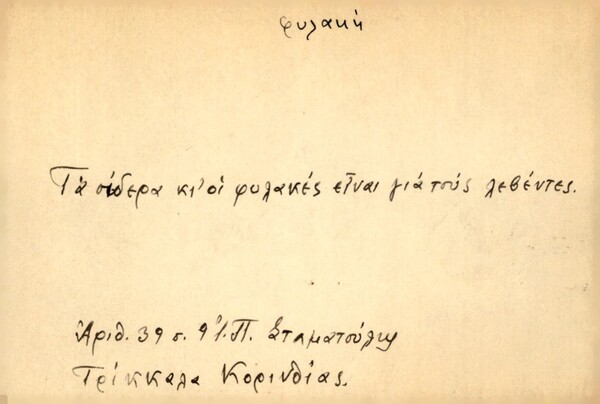 φυλακή
Τά σίδερα κι' οἱ φυλακές εἶναι γιά τούς λεβέντες.
Ἀριθ. 39 σ. 91. Π. Σταματούλης
Τρίκκαλα Κορινθίας.